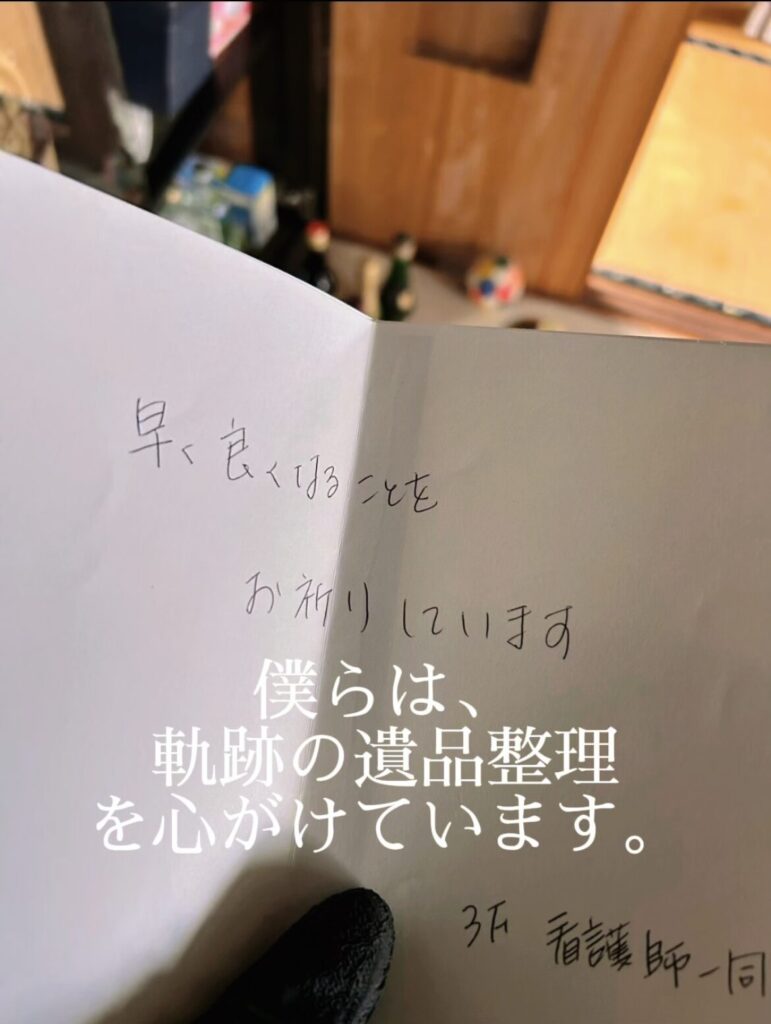 早く良くなることを
お祈りしています
僕らは、
軌跡の遺品整理
を心がけています。
3F 看護師一同